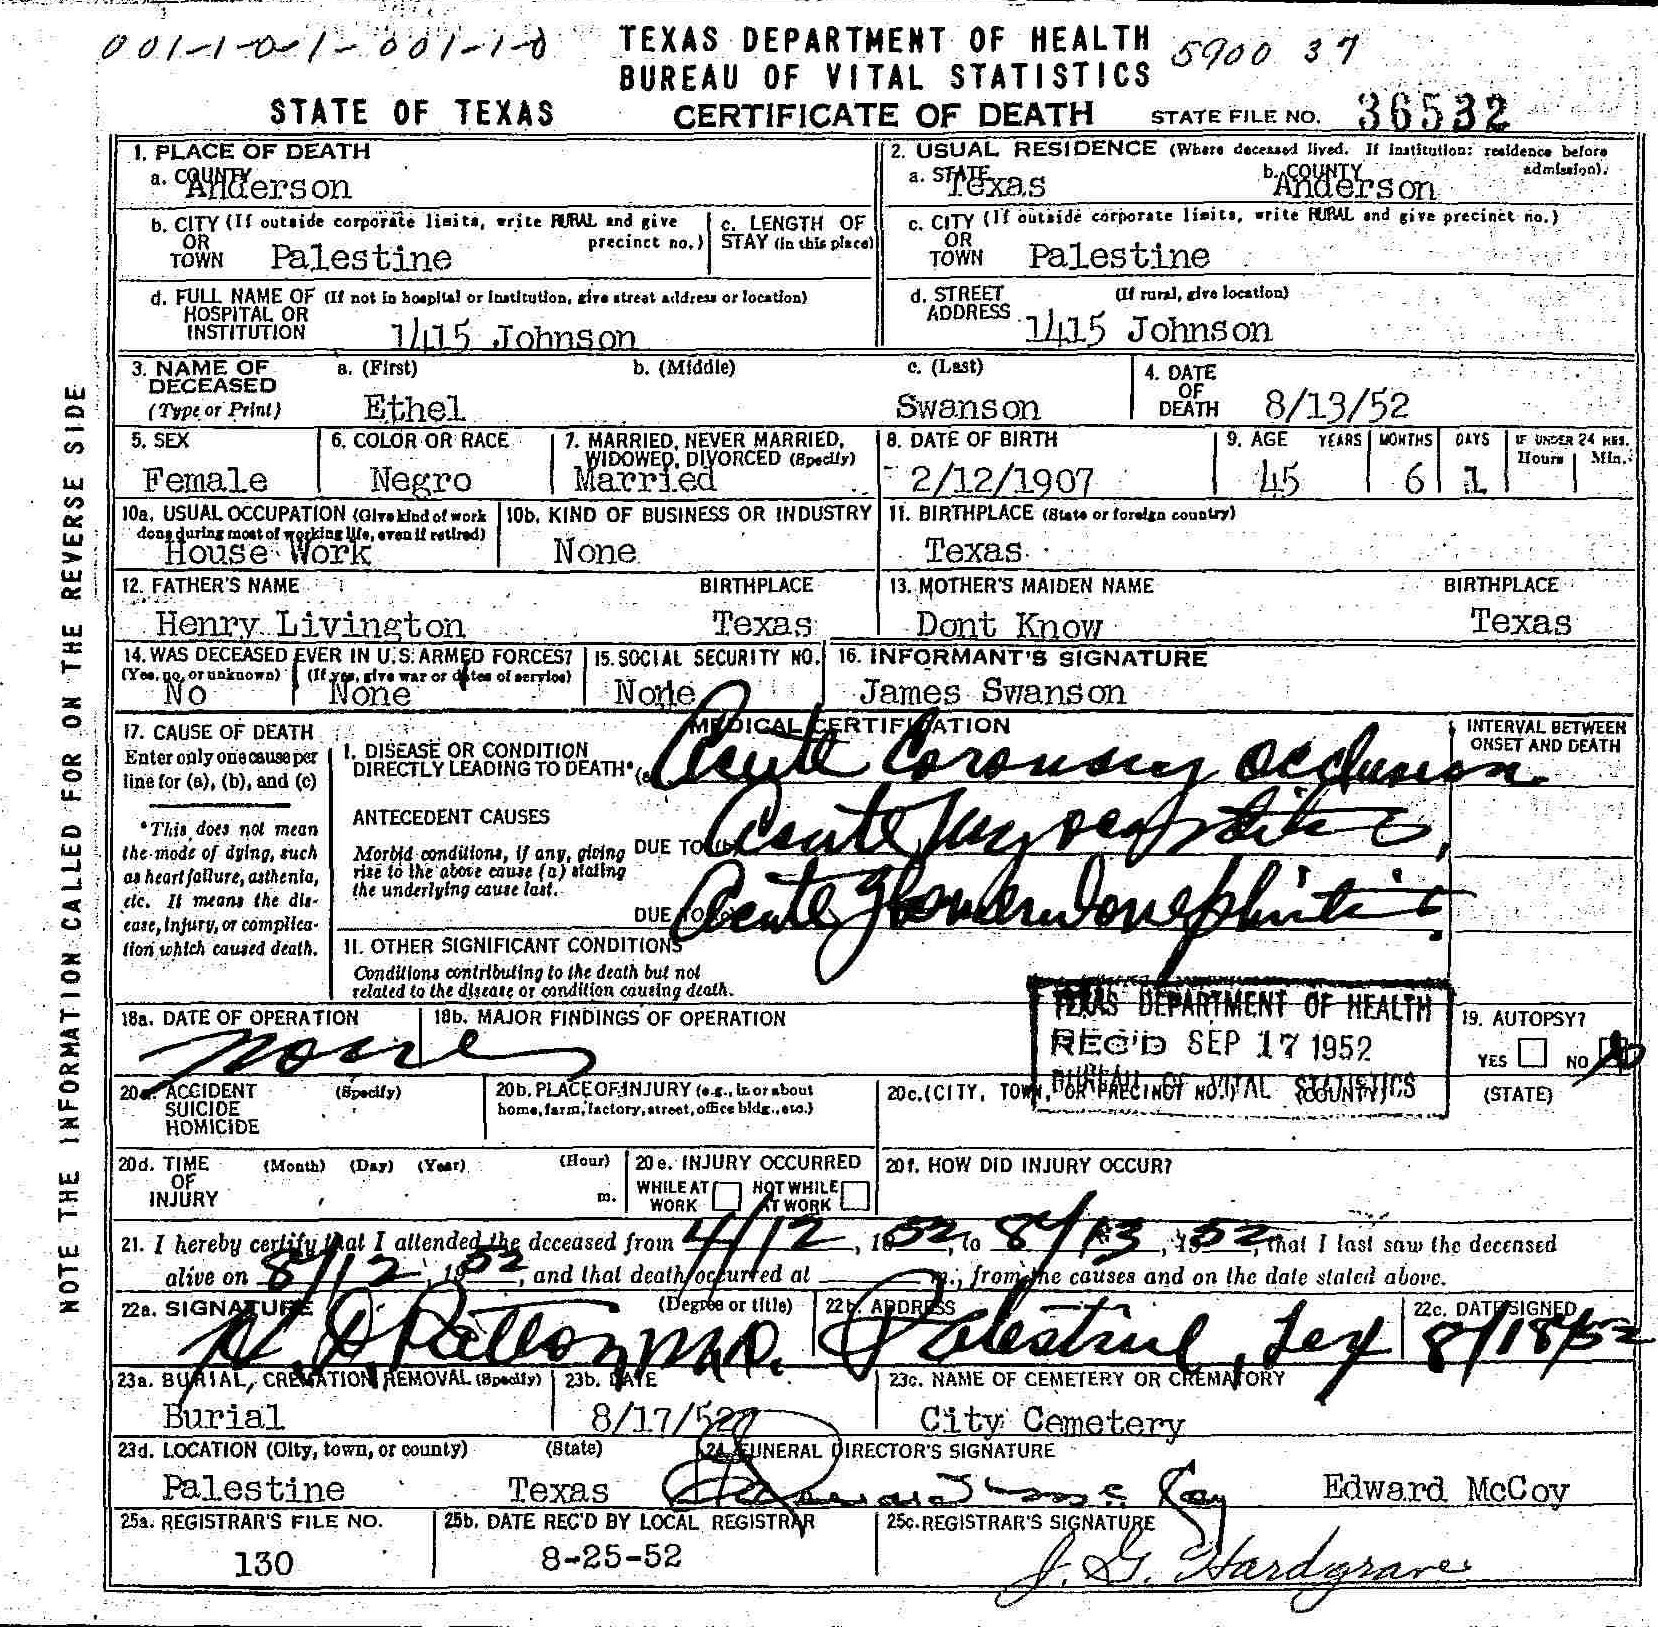 001-1-0-1-001-1-0
TEXAS DEPARTMENT OF HEALTH 5900 37
BUREAU OF VITAL STATISTICS
STATE OF TEXAS CERTIFICATE OF DEATH STATE FILE NO. 36532
1. PLACE OF DEATH
a. COUNTY Anderson
2. USUAL RESIDENCE (Where deceased lived. If institution: residence before admission).
a. STATE Texas b. COUNTY Anderson
b. CITY (If outside corporate limits, write RURAL and give precinct no.) OR TOWN Palestine
c. LENGTH OF STAY (in this place)
c. CITY (If outside corporate limits, write RURAL and give precinct no.) OR TOWN Palestine
d. FULL NAME OF (If not in hospital or institution, give street address or location)
HOSPITAL OR INSTITUTION 1415 Johnson
d. STREET ADDRESS (If rural, give location) 1415 Johnson
3. NAME OF DECEASED (Type or Print) a. (First) Ethel b. (Middle) c. (Last) Swanson
4. DATE OF DEATH 8/13/52
5. SEX Female
6. COLOR OR RACE Negro
7. MARRIED, NEVER MARRIED, WIDOWED, DIVORCED (Specify) Married
8. DATE OF BIRTH 2/12/1907
9. AGE YEARS 45 MONTHS 6 DAYS 1 IF UNDER 24 HRS. Hours Min.
10a. USUAL OCCUPATION (Give kind of work done during most of working life, even if retired) House Work
10b. KIND OF BUSINESS OR INDUSTRY None
11. BIRTHPLACE (State or foreign country) Texas
12. FATHER'S NAME Henry Livington BIRTHPLACE Texas
13. MOTHER'S MAIDEN NAME Dont Know BIRTHPLACE Texas
14. WAS DECEASED EVER IN U.S. ARMED FORCES? (Yes, no, or unknown) No (If yes, give war or dates of service) None
15. SOCIAL SECURITY NO. None
16. INFORMANT'S SIGNATURE James Swanson
17. CAUSE OF DEATH
Enter only one cause per line for (a), (b), and (c)
*This does not mean the mode of dying, such as heart failure, asthenia, etc. It means the disease, injury, or complication which caused death.
MEDICAL CERTIFICATION
INTERVAL BETWEEN ONSET AND DEATH
I. DISEASE OR CONDITION DIRECTLY LEADING TO DEATH* (a) Acute Coronary occlusion
ANTECEDENT CAUSES
Morbid conditions, if any, giving rise to the above cause (a) stating the underlying cause last.
DUE TO (b) Acute Myocarditis,
DUE TO (c) Acute Glomerulonephritis.
II. OTHER SIGNIFICANT CONDITIONS
Conditions contributing to the death but not related to the disease or condition causing death.
TEXAS DEPARTMENT OF HEALTH
REC'D SEP 17 1952
BUREAU OF VITAL STATISTICS
18a. DATE OF OPERATION None
18b. MAJOR FINDINGS OF OPERATION
19. AUTOPSY? YES NO
20a. ACCIDENT SUICIDE HOMICIDE (Specify)
20b. PLACE OF INJURY (e.g., in or about home, farm, factory, street, office bldg., etc.)
20c. (CITY, TOWN, OR PRECINCT NO.) (COUNTY) (STATE)
20d. TIME OF INJURY (Month) (Day) (Year) (Hour) m.
20e. INJURY OCCURRED WHILE AT WORK NOT WHILE AT WORK
20f. HOW DID INJURY OCCUR?
21. I hereby certify that I attended the deceased from 4/12, 1952, to 8/13, 1952, that I last saw the deceased
alive on 8/12, 1952, and that death occurred at m., from the causes and on the date stated above.
22a. SIGNATURE (Degree or title) Patton, M.D.
22b. ADDRESS Palestine, Tex
22c. DATE SIGNED 8/18/52
23a. BURIAL, CREMATION, REMOVAL (Specify) Burial
23b. DATE 8/17/52
23c. NAME OF CEMETERY OR CREMATORY City Cemetery
23d. LOCATION (City, town, or county) Palestine (State) Texas
24. FUNERAL DIRECTOR'S SIGNATURE Edward McCoy
25a. REGISTRAR'S FILE NO. 130
25b. DATE REC'D BY LOCAL REGISTRAR 8-25-52
25c. REGISTRAR'S SIGNATURE J. G. Hardgrave
NOTE THE INFORMATION CALLED FOR ON THE REVERSE SIDE